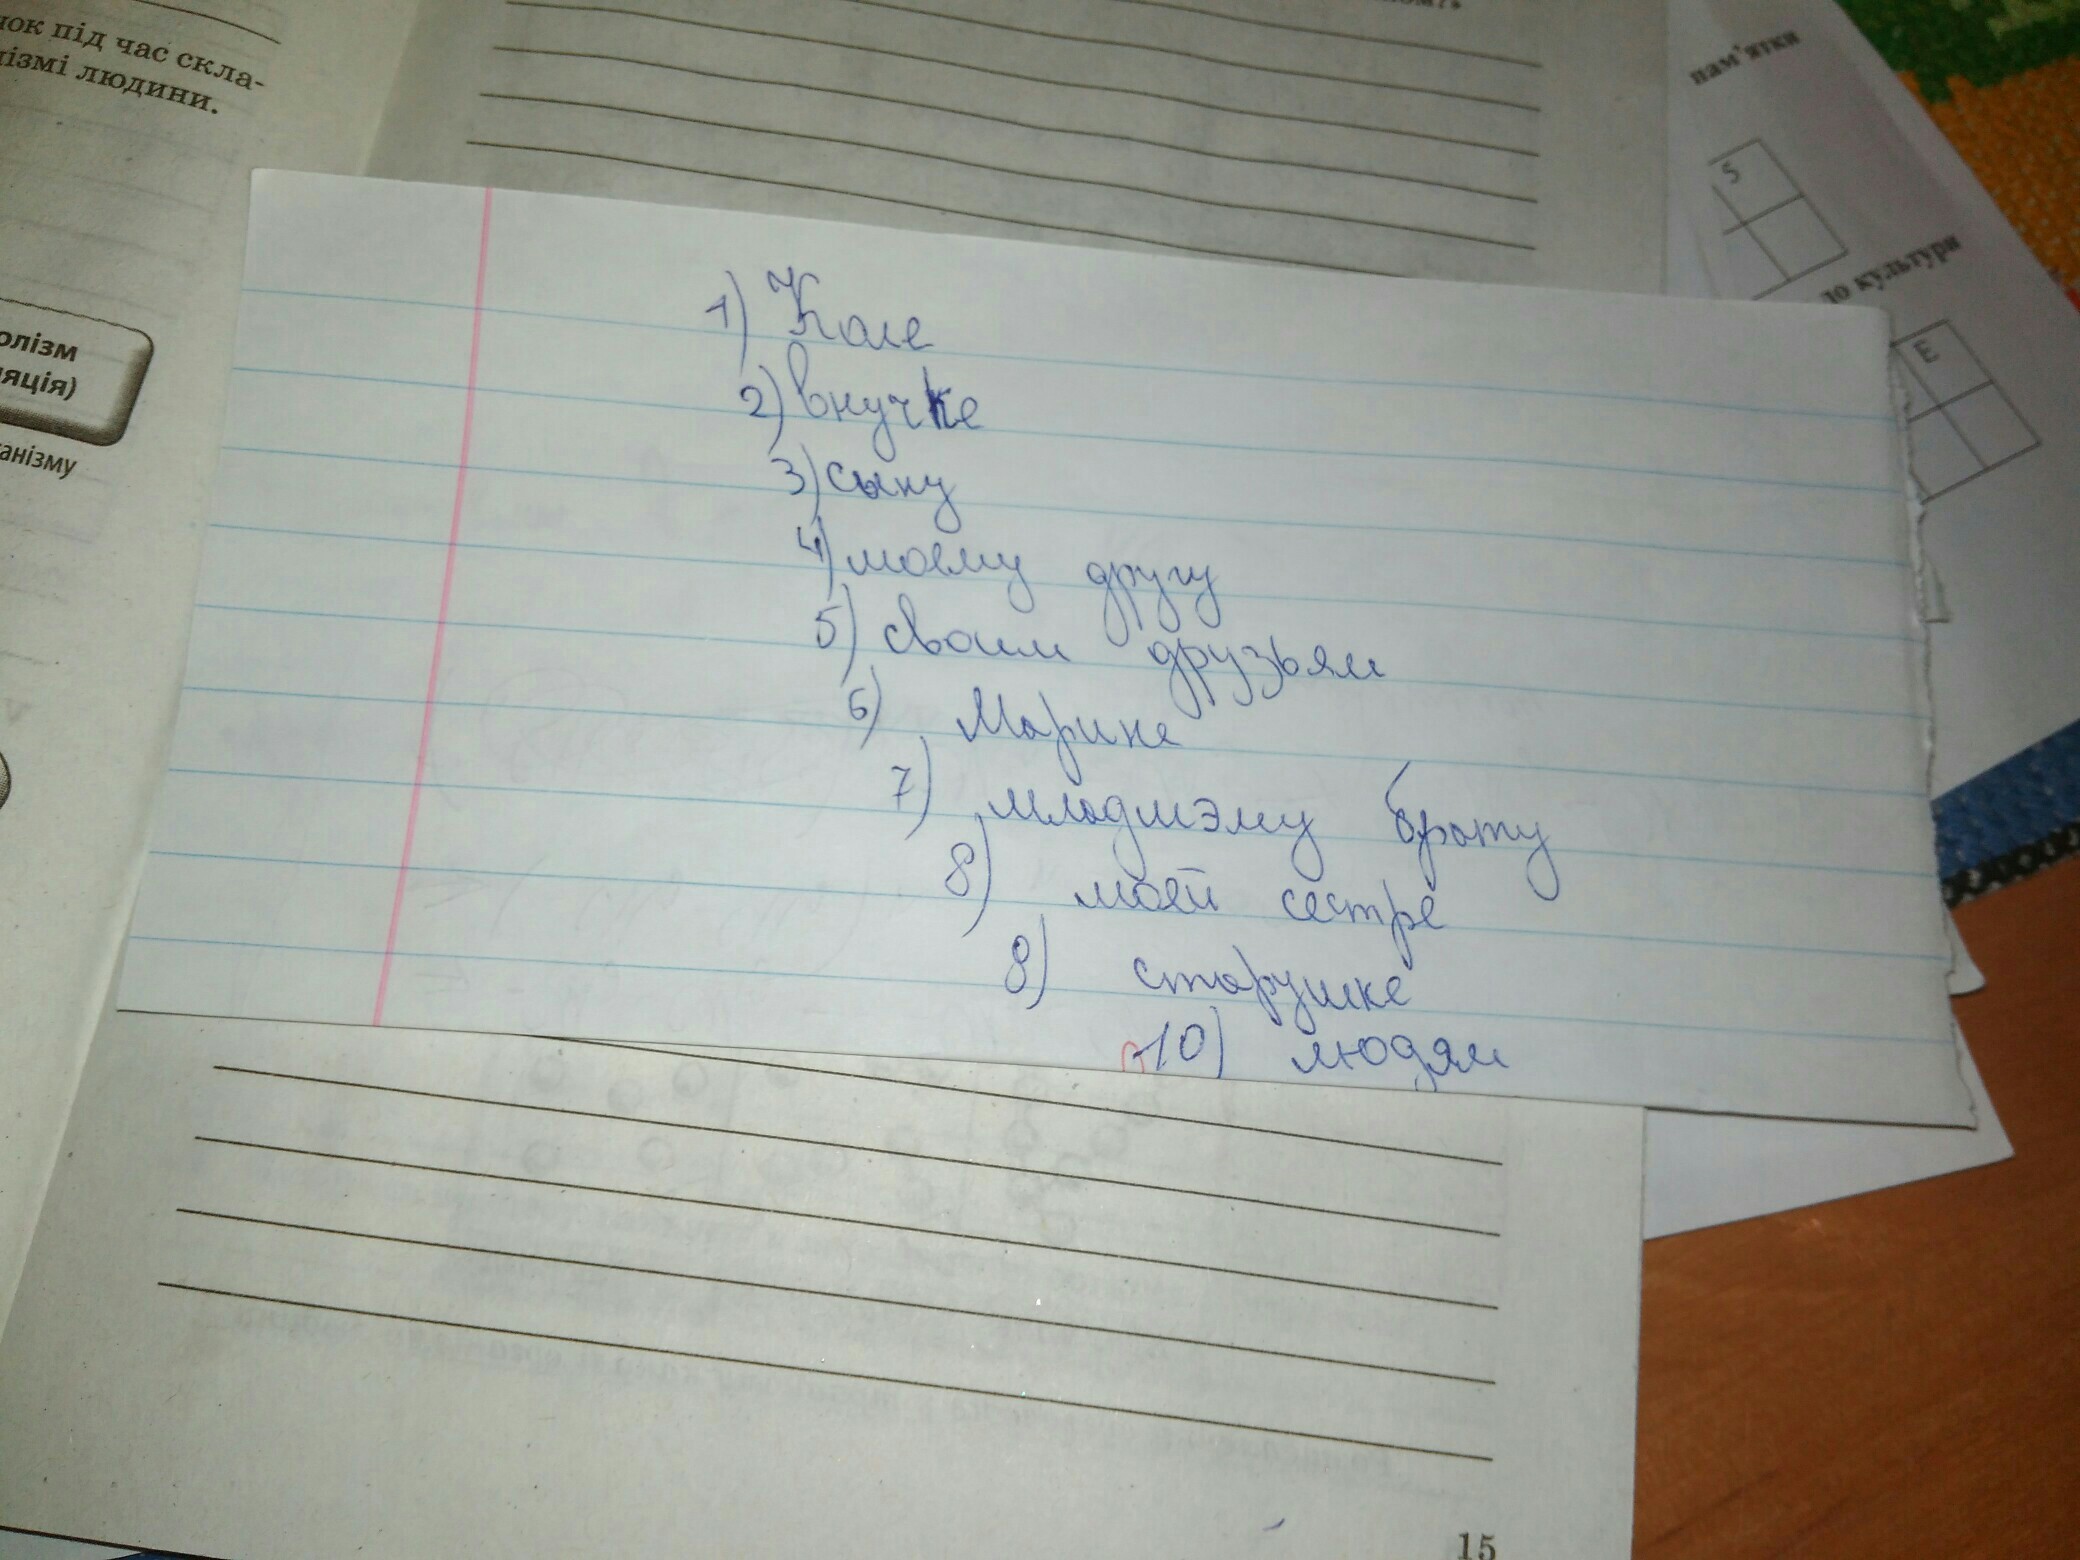 нок під час скла-
лізмі людини.
олізм
яція)
анізму
пам'ятки
5
ло культури
E
1) Коле
2) внучке
3) сыну
4) моему другу
5) своим друзьям
6) Марине
7) младшэму брату
8) моей сестре
9) старушке
10) людям
15